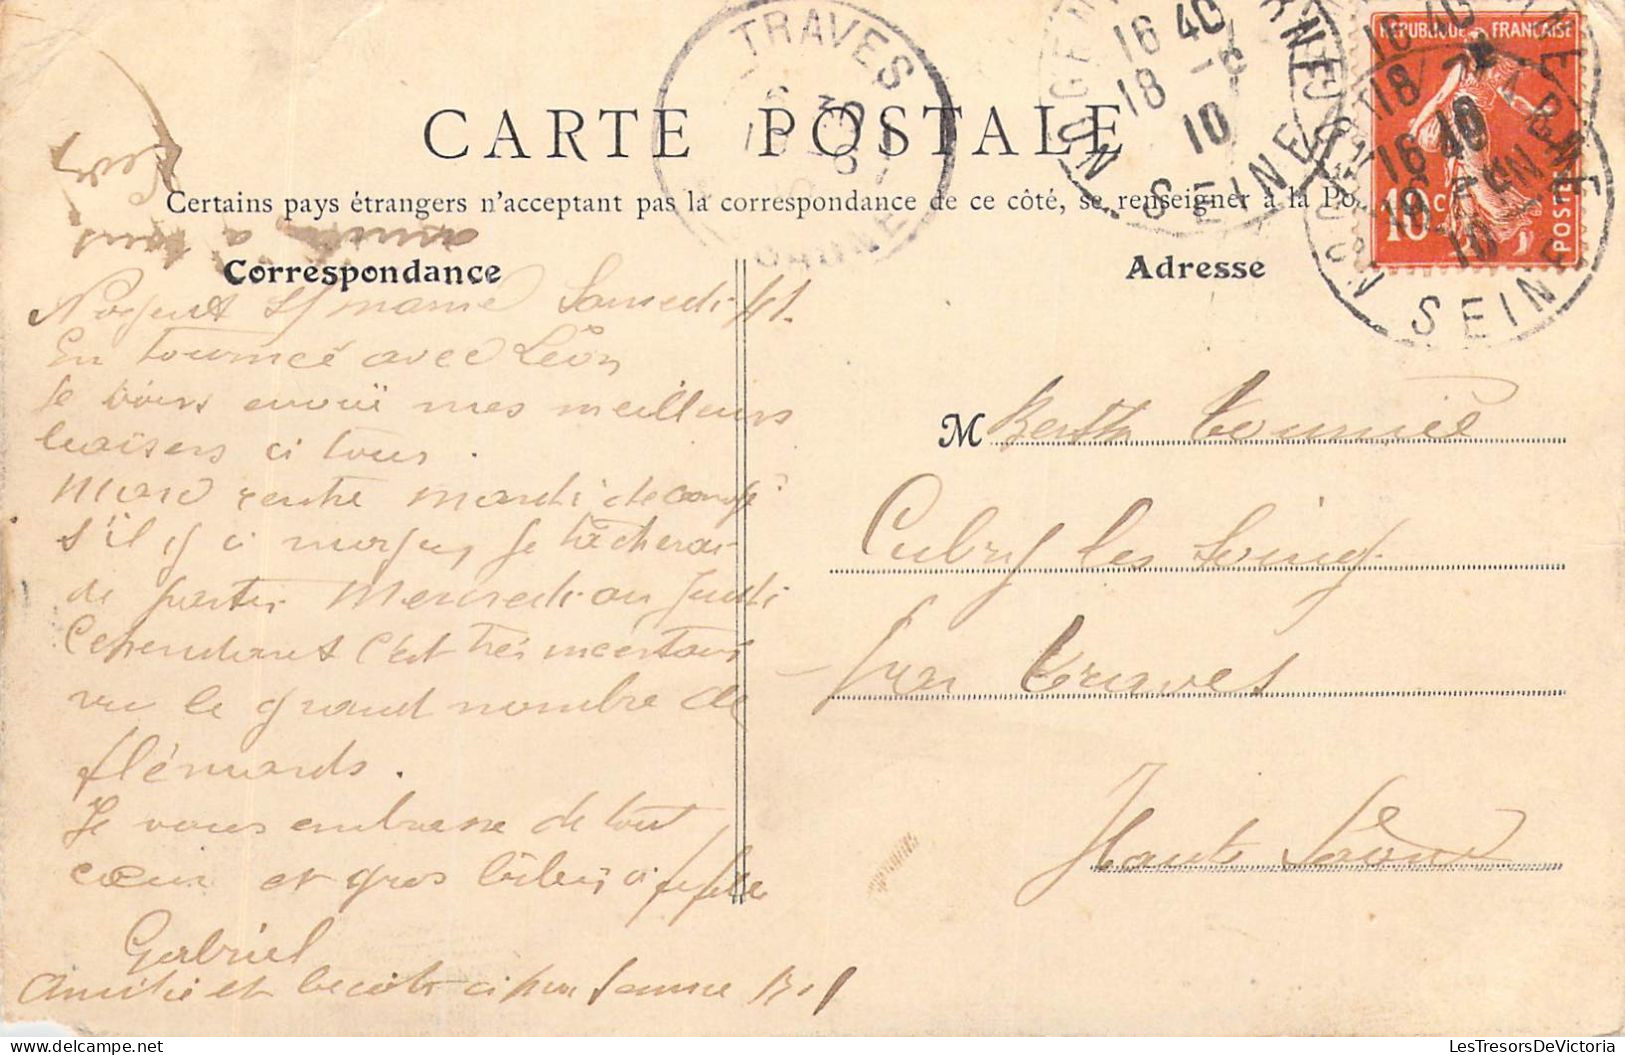 CARTE POSTALE
Certains pays étrangers n'acceptent pas la correspondance de ce côté, se renseigner à la Po
Correspondance
Adresse
TRAVES
SAONE
NOGENT
16 40
18 -6
10
SEINE
REPUBLIQUE FRANÇAISE
10 c
POSTES
16 40
18
MARNE
SEINE
Léon
amitiés à tous
Nogent s/ marne Samedi
En tournée avec Léon
Je vous envoie mes meilleurs
baisers à tous.
rentre mardi de
s'il y a moyen, je tâcherai
de partir Mercredi ou Jeudi
Cependant c'est très incertain
vu le grand nombre de
flémards.
Je vous embrasse de tout
cœur et gros
Gabriel
Amitié et
M Berthe Tournier
Cubry les Soing
par Traves
Haute Saône
LesTresorsDeVictoria